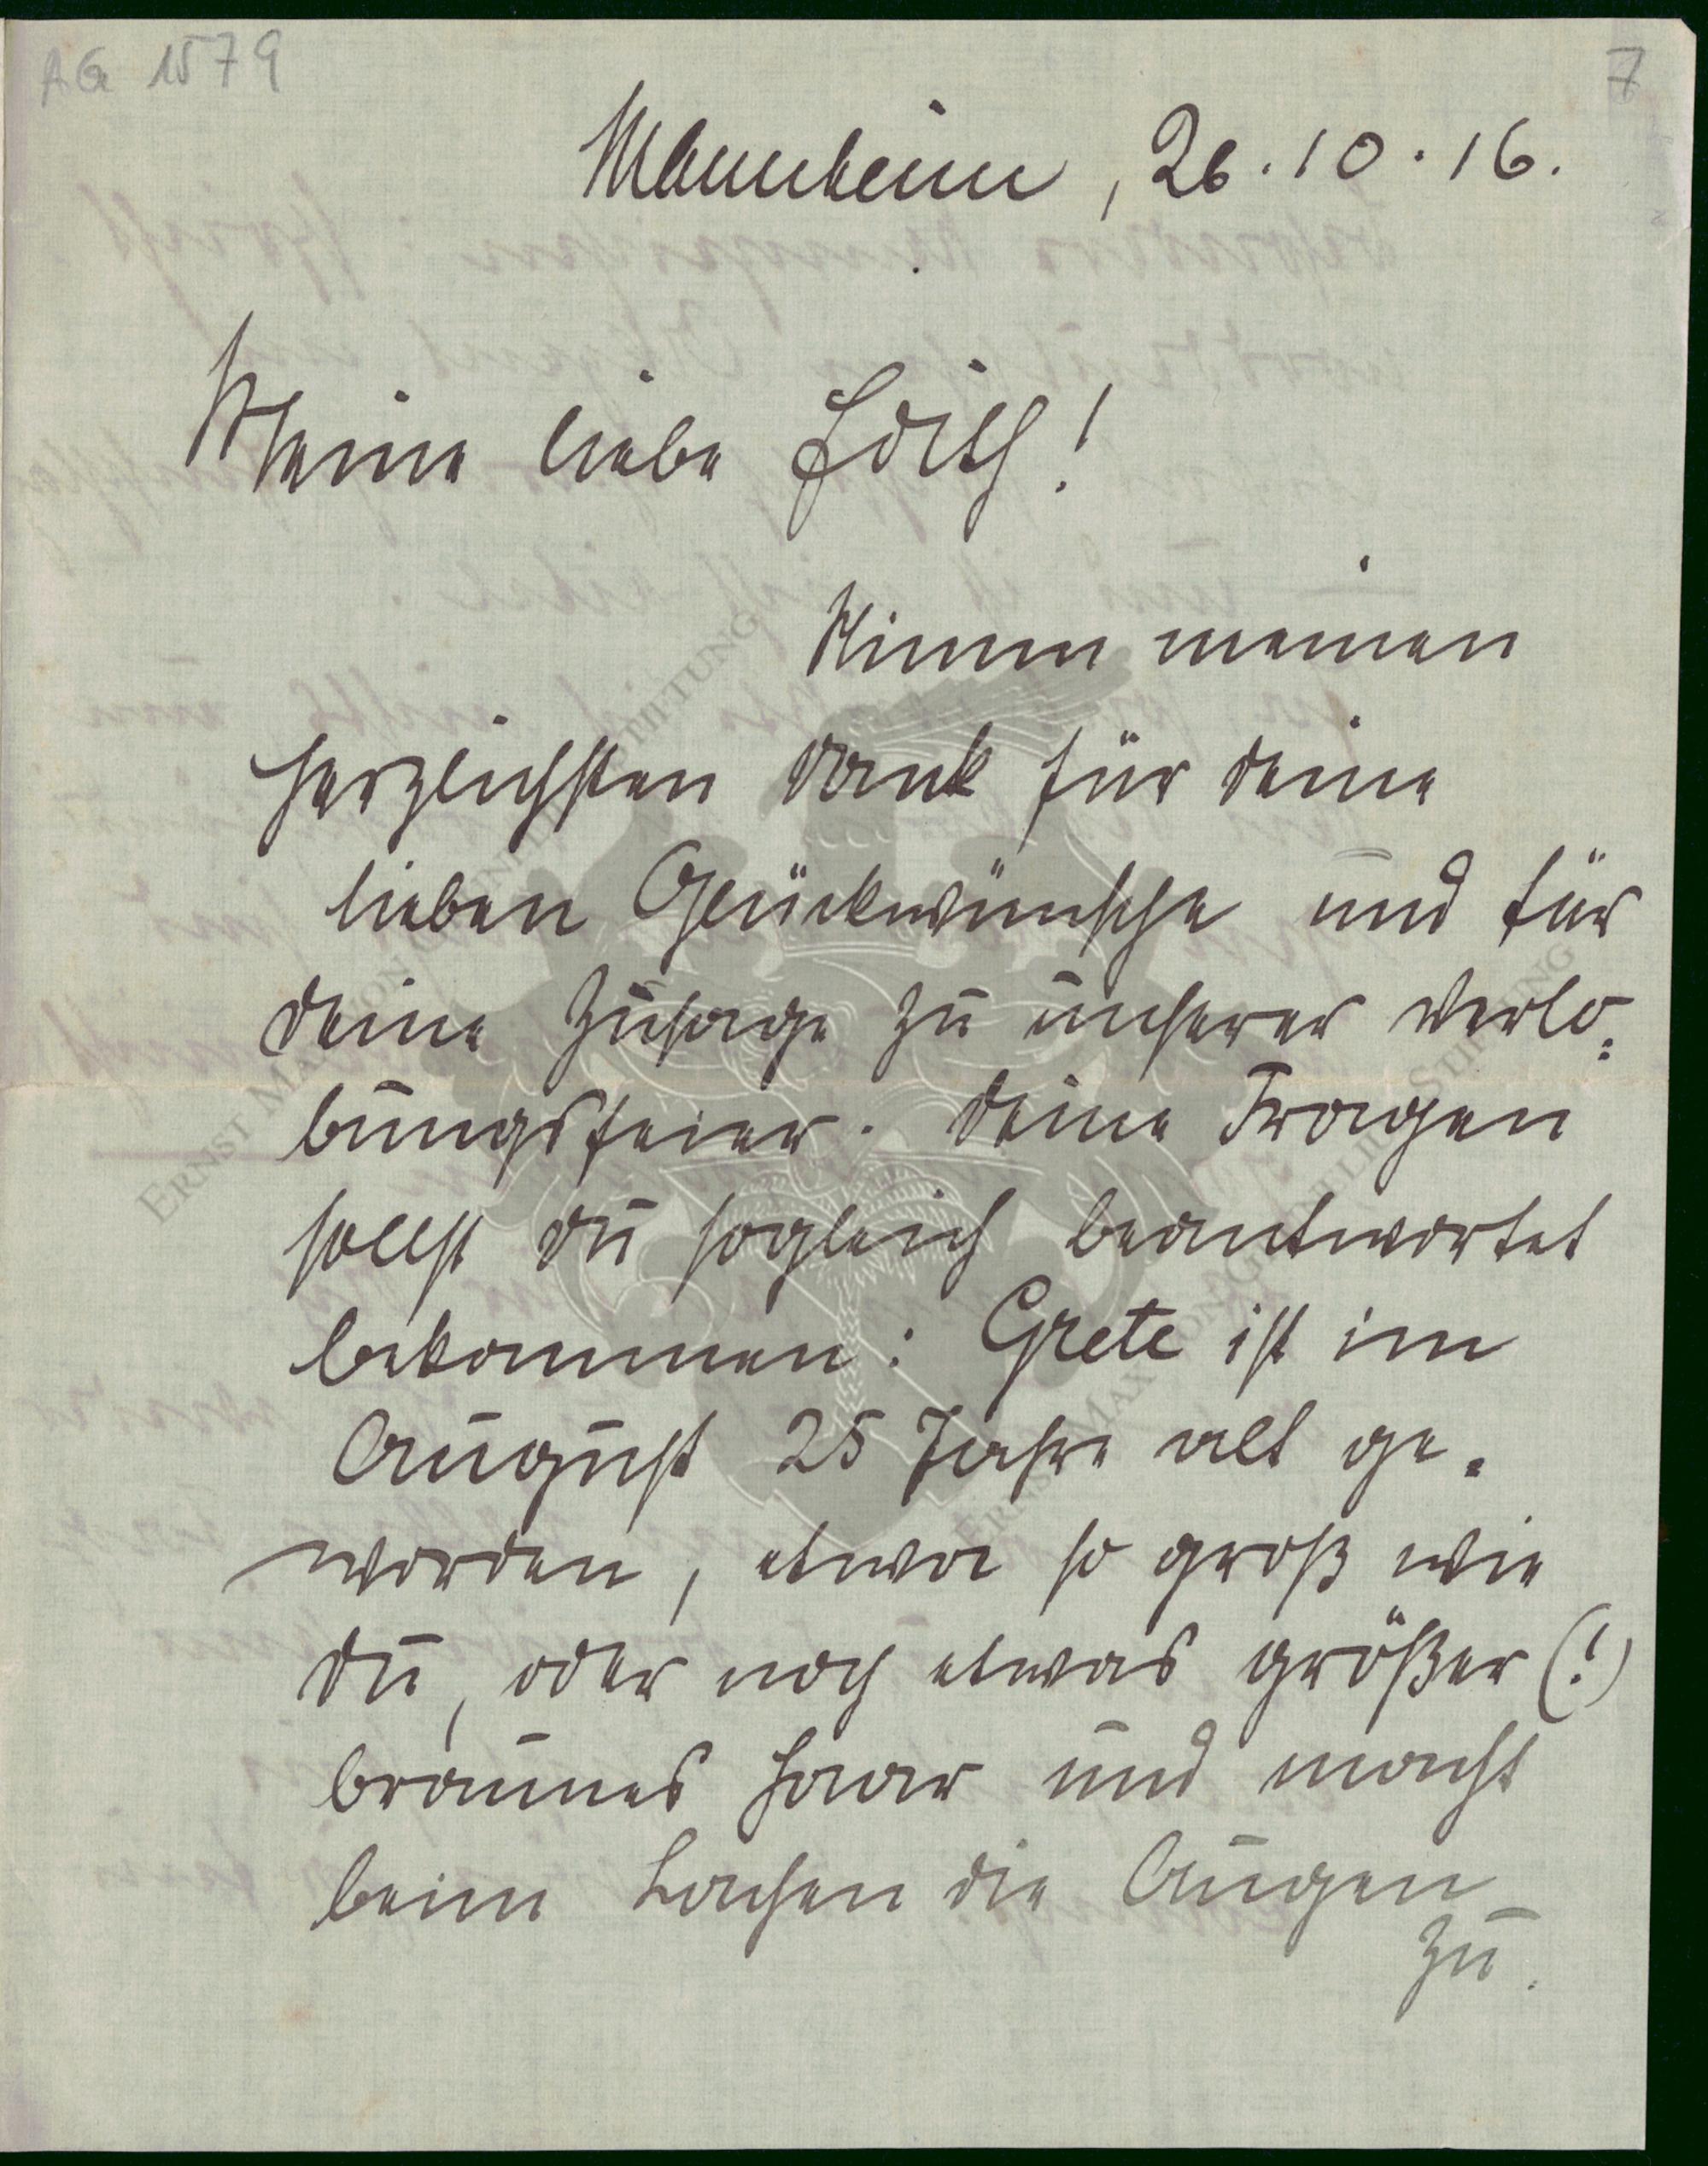 AG 1579
7
Mannheim, 26.10.16.
Meine liebe Edith!
Nimm meinen
herzlichsten Dank für Deine
lieben Glückwünsche und für
Deine Zusage zu unserer Verlo=
bungsfeier. Deine Fragen
sollst Du sogleich beantwortet
bekommen: Grete ist im
August 25 Jahre alt ge=
worden, etwa so groß wie
Du, oder noch etwas größer (!)
braunes Haar und macht
beim Lachen die Augen
zu.